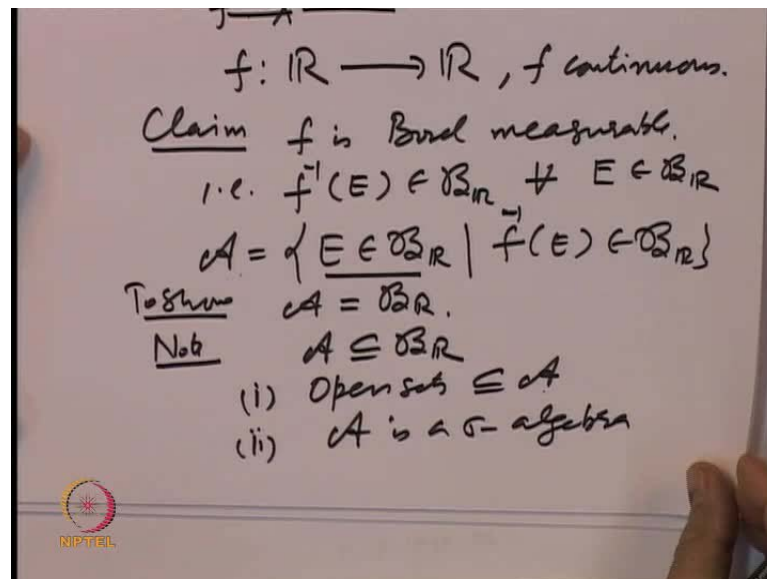 f: ℝ ⟶ ℝ, f continuous.
Claim f is Borel measurable.
i.e. f⁻¹(E) ∈ ℬ_ℝ ∀ E ∈ ℬ_ℝ
𝒜 = { E ∈ ℬ_ℝ | f⁻¹(E) ∈ ℬ_ℝ}
To Show 𝒜 = ℬ_ℝ.
Note 𝒜 ⊆ ℬ_ℝ
(i) Open sets ⊆ 𝒜
(ii) 𝒜 is a σ- algebra
NPTEL